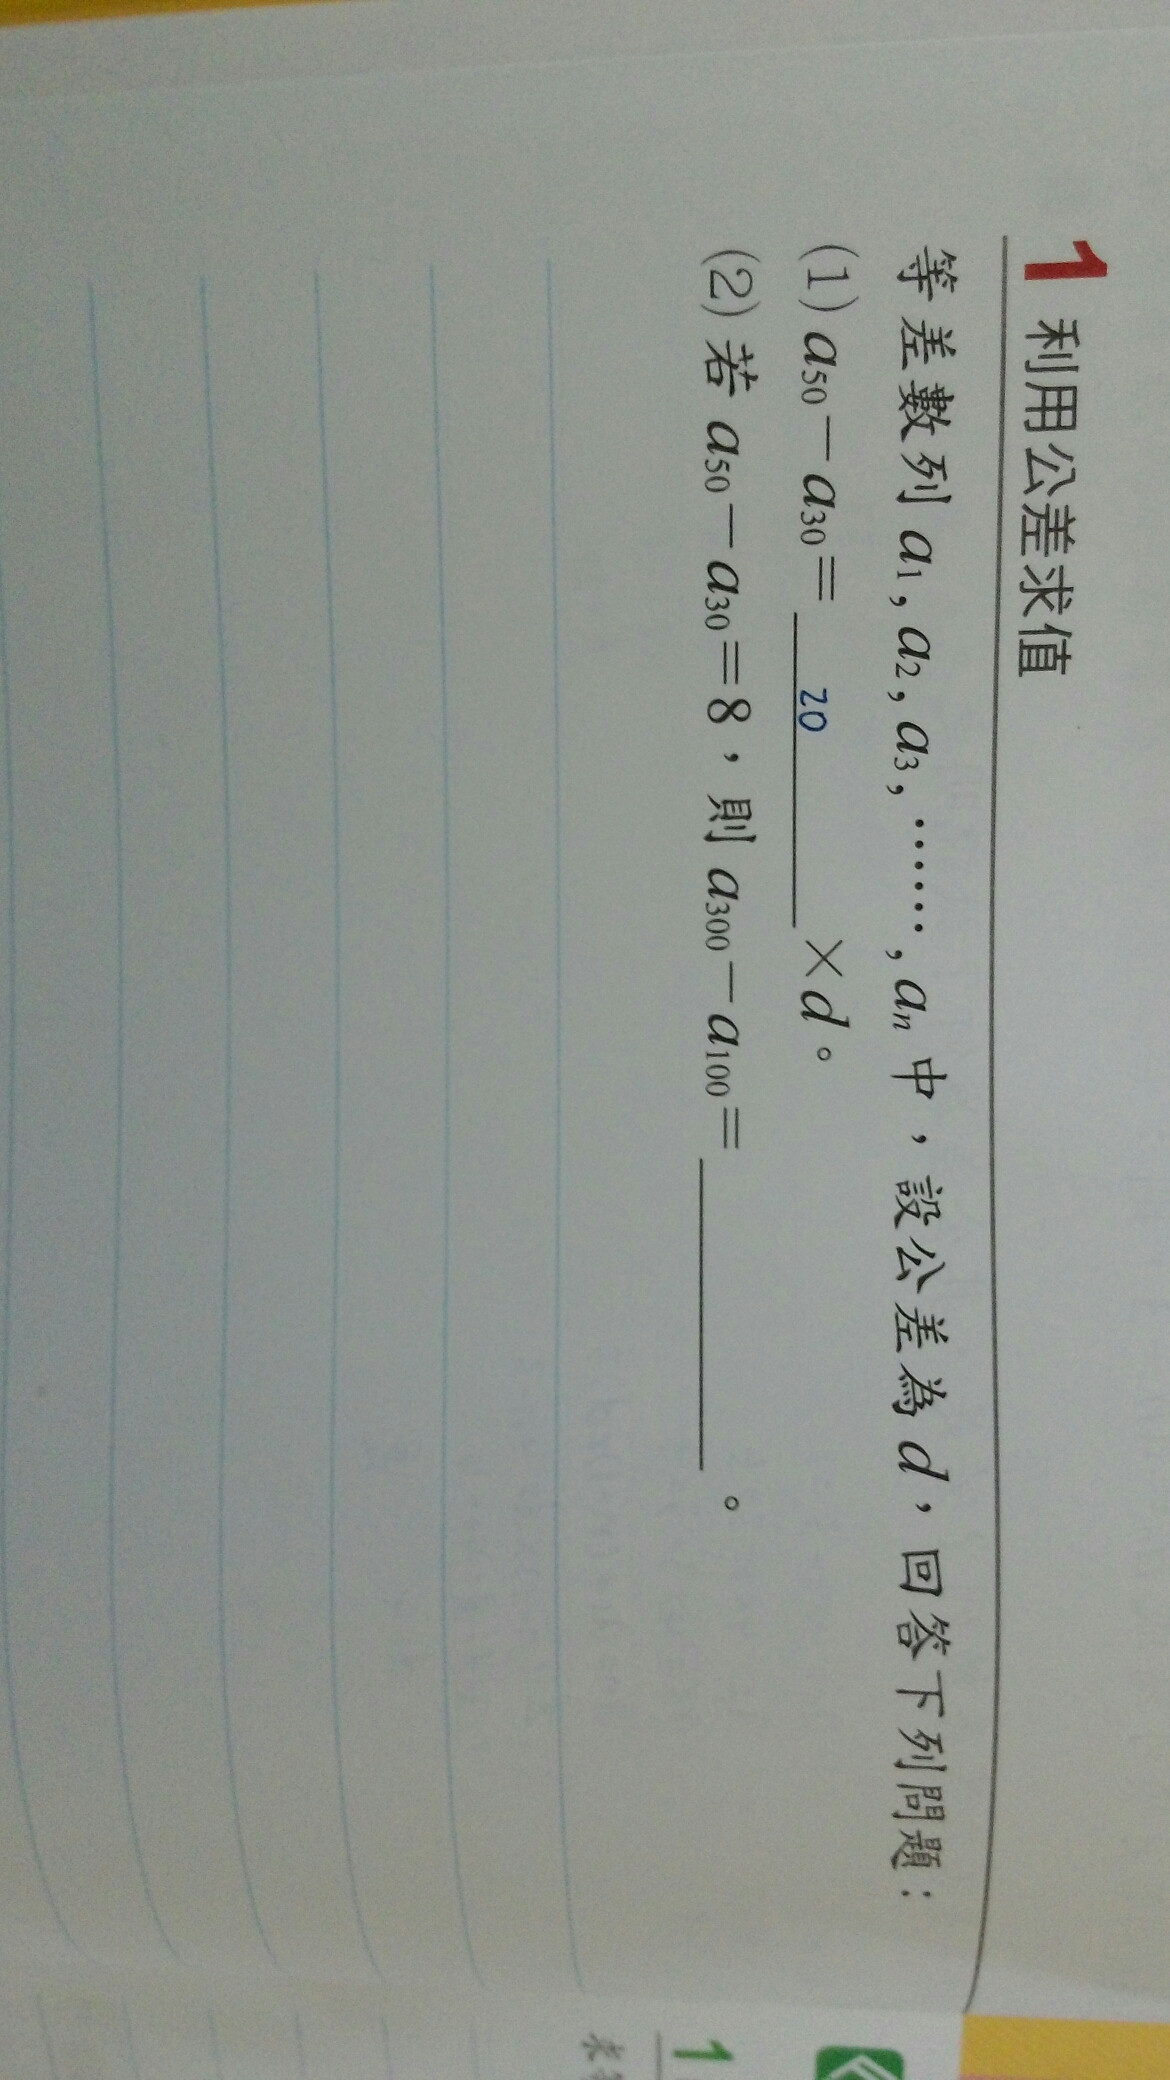 1 利用公差求值
等差數列 a₁, a₂, a₃, ……, aₙ 中，設公差為 d，回答下列問題：
(1) a₅₀－a₃₀＝ 20 ×d。
(2) 若 a₅₀－a₃₀＝8，則 a₃₀₀－a₁₀₀＝＿＿＿＿。
1